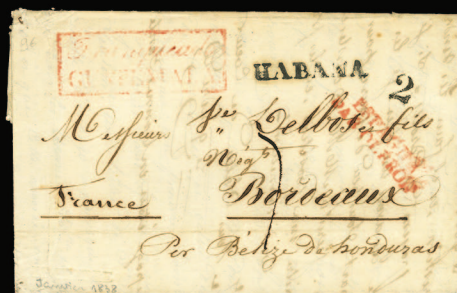 GUATEMALA
HABANA
2
Messieurs Pre Delbos & fils
Négts
France Bordeaux
Per Bélize de honduras
Janvier 1838